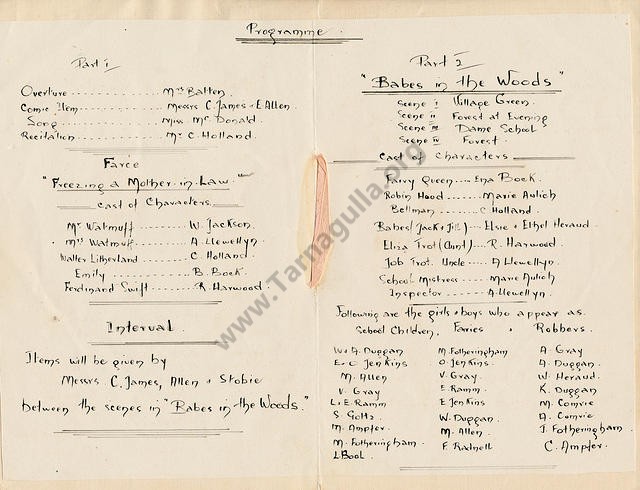 Programme.
Part 1
Overture ........... Mrs Batten.
Comic Item ........... Messrs C. James & E. Allen
Song ........... Miss McDonald.
Recitation ........... Mr C. Holland.
Farce
"Freezing a Mother-in-Law."
Cast of Characters.
Mr Watmuff ........ W. Jackson.
Mrs Watmuff ........ A. Llewellyn.
Walter Litherland ........ C. Holland
Emily ........ B. Bock.
Ferdinand Swift ........ R. Harwood.
Interval.
Items will be given by
Messrs C. James, Allen & Stobie
between the scenes in "Babes in the Woods."
Part 2
"Babes in the Woods"
Scene i Village Green.
Scene ii Forest at Evening
Scene iii Dame School
Scene iv Forest.
Cast of Characters
Fairy Queen ...... Ena Bock.
Robin Hood ....... Marie Aulich
Bellman ........ C Holland
Babes (Jack & Jill) .. Elsie & Ethel Heraud
Eliza Trot (Aunt) .... R. Harwood.
Job Trot. Uncle .... A Llewellyn.
School Mistress ..... Marie Aulich
Inspector ....... A. Llewellyn.
Following are the girls & boys who appear as.
School Children, Faries & Robbers.
W & A. Duggan
E. O Jenkins
M. Allen
V. Gray
L. E. Ramm
S. Goltz
M. Ampfer.
M. Fotheringham.
L Bool
M. Fotheringham
O. Jenkins.
V. Gray
E. Ramm
E Jenkins
W. Duggan
M. Allen
F. Radnell
A. Gray
A. Duggan.
W. Heraud.
K. Duggan
M. Comrie
A. Comrie
J. Fotheringham
C. Ampfer.
www.Tarnagulla.org